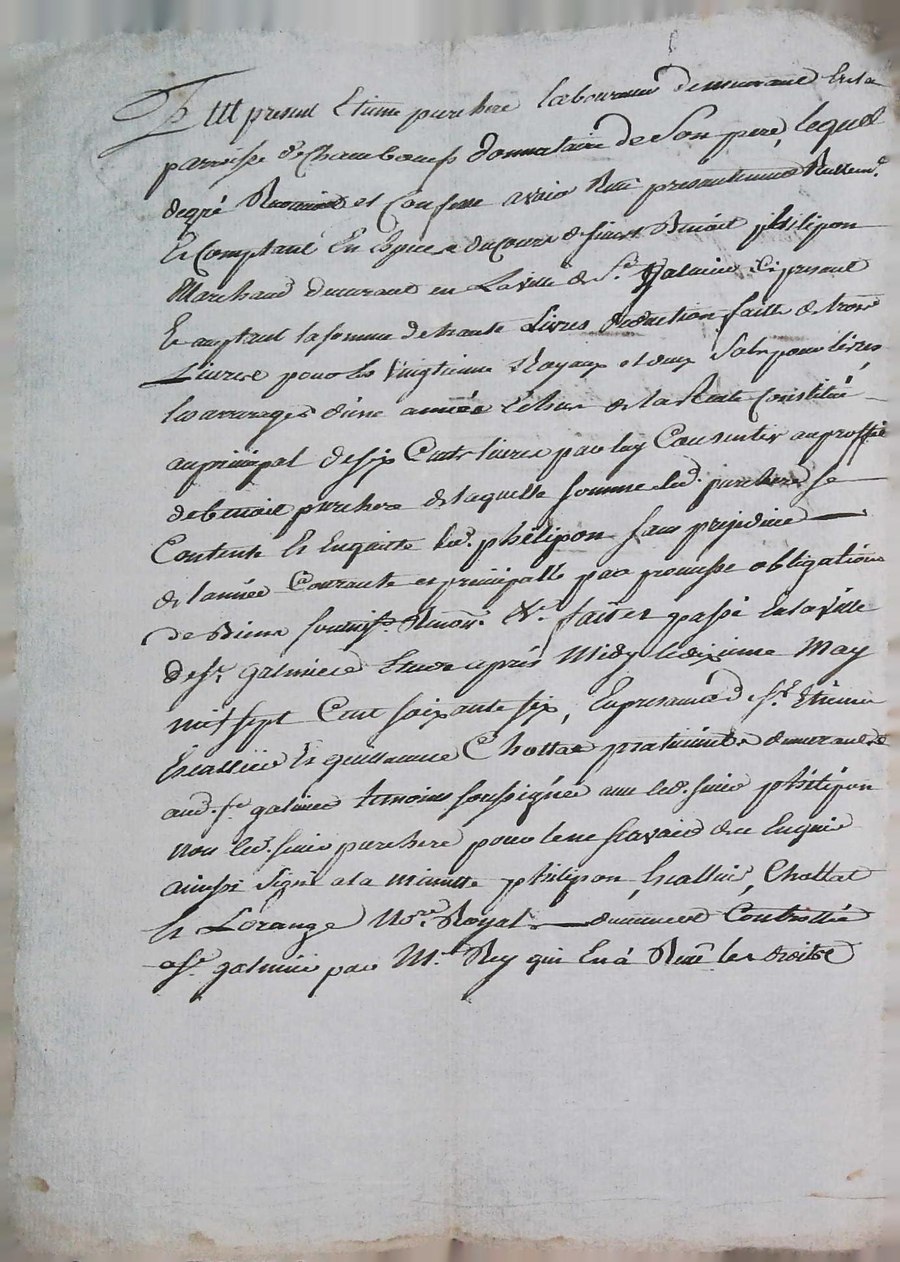 Fut present Etienne purchere laboureur demeurant En la
parroisse de Chambœuf donnataire de Son pere, lequel
de gré Reconnoit et Confesse avoir Receu presentement Reellemt.
Et Comptant En Espece du Cours de sieur Benoit philipon
Marchand demeurant en La ville de St. galmier Cy present
Et acceptant la somme de trente Livres deduction faitte de trois
Livres pour les Vingtieme Royaux et deux sols pour livres
les arrerages d'une année Echue de la Rente Constituée
au principal de six Cents livres par luy Consentie au proffit
de benoit purchere de laquelle somme led. purchere se
Contente Et En quitte led. philipon sans prejudice
de l'année Courante et principalle par promesse obligation
de Biens soumiss. Renon. &c. fait et passé en la ville
de st. galmier Etude après Midy le dixieme May
mil sept Cent soixante six, En presence de sr. Etienne
Escallier Et guillaume Chottat praticiens demeurants
aud. st. galmier temoins soussignés avec led. sieur philipon
non led. sieur purchere pour ne sçavoir de ce Enquis
ainsi signé a la minutte philipon, Escallier, Chottat
Et Lorange Nore. Royal. duement Controllée
a st. galmier par Mr. Rey qui En a Receu les droits